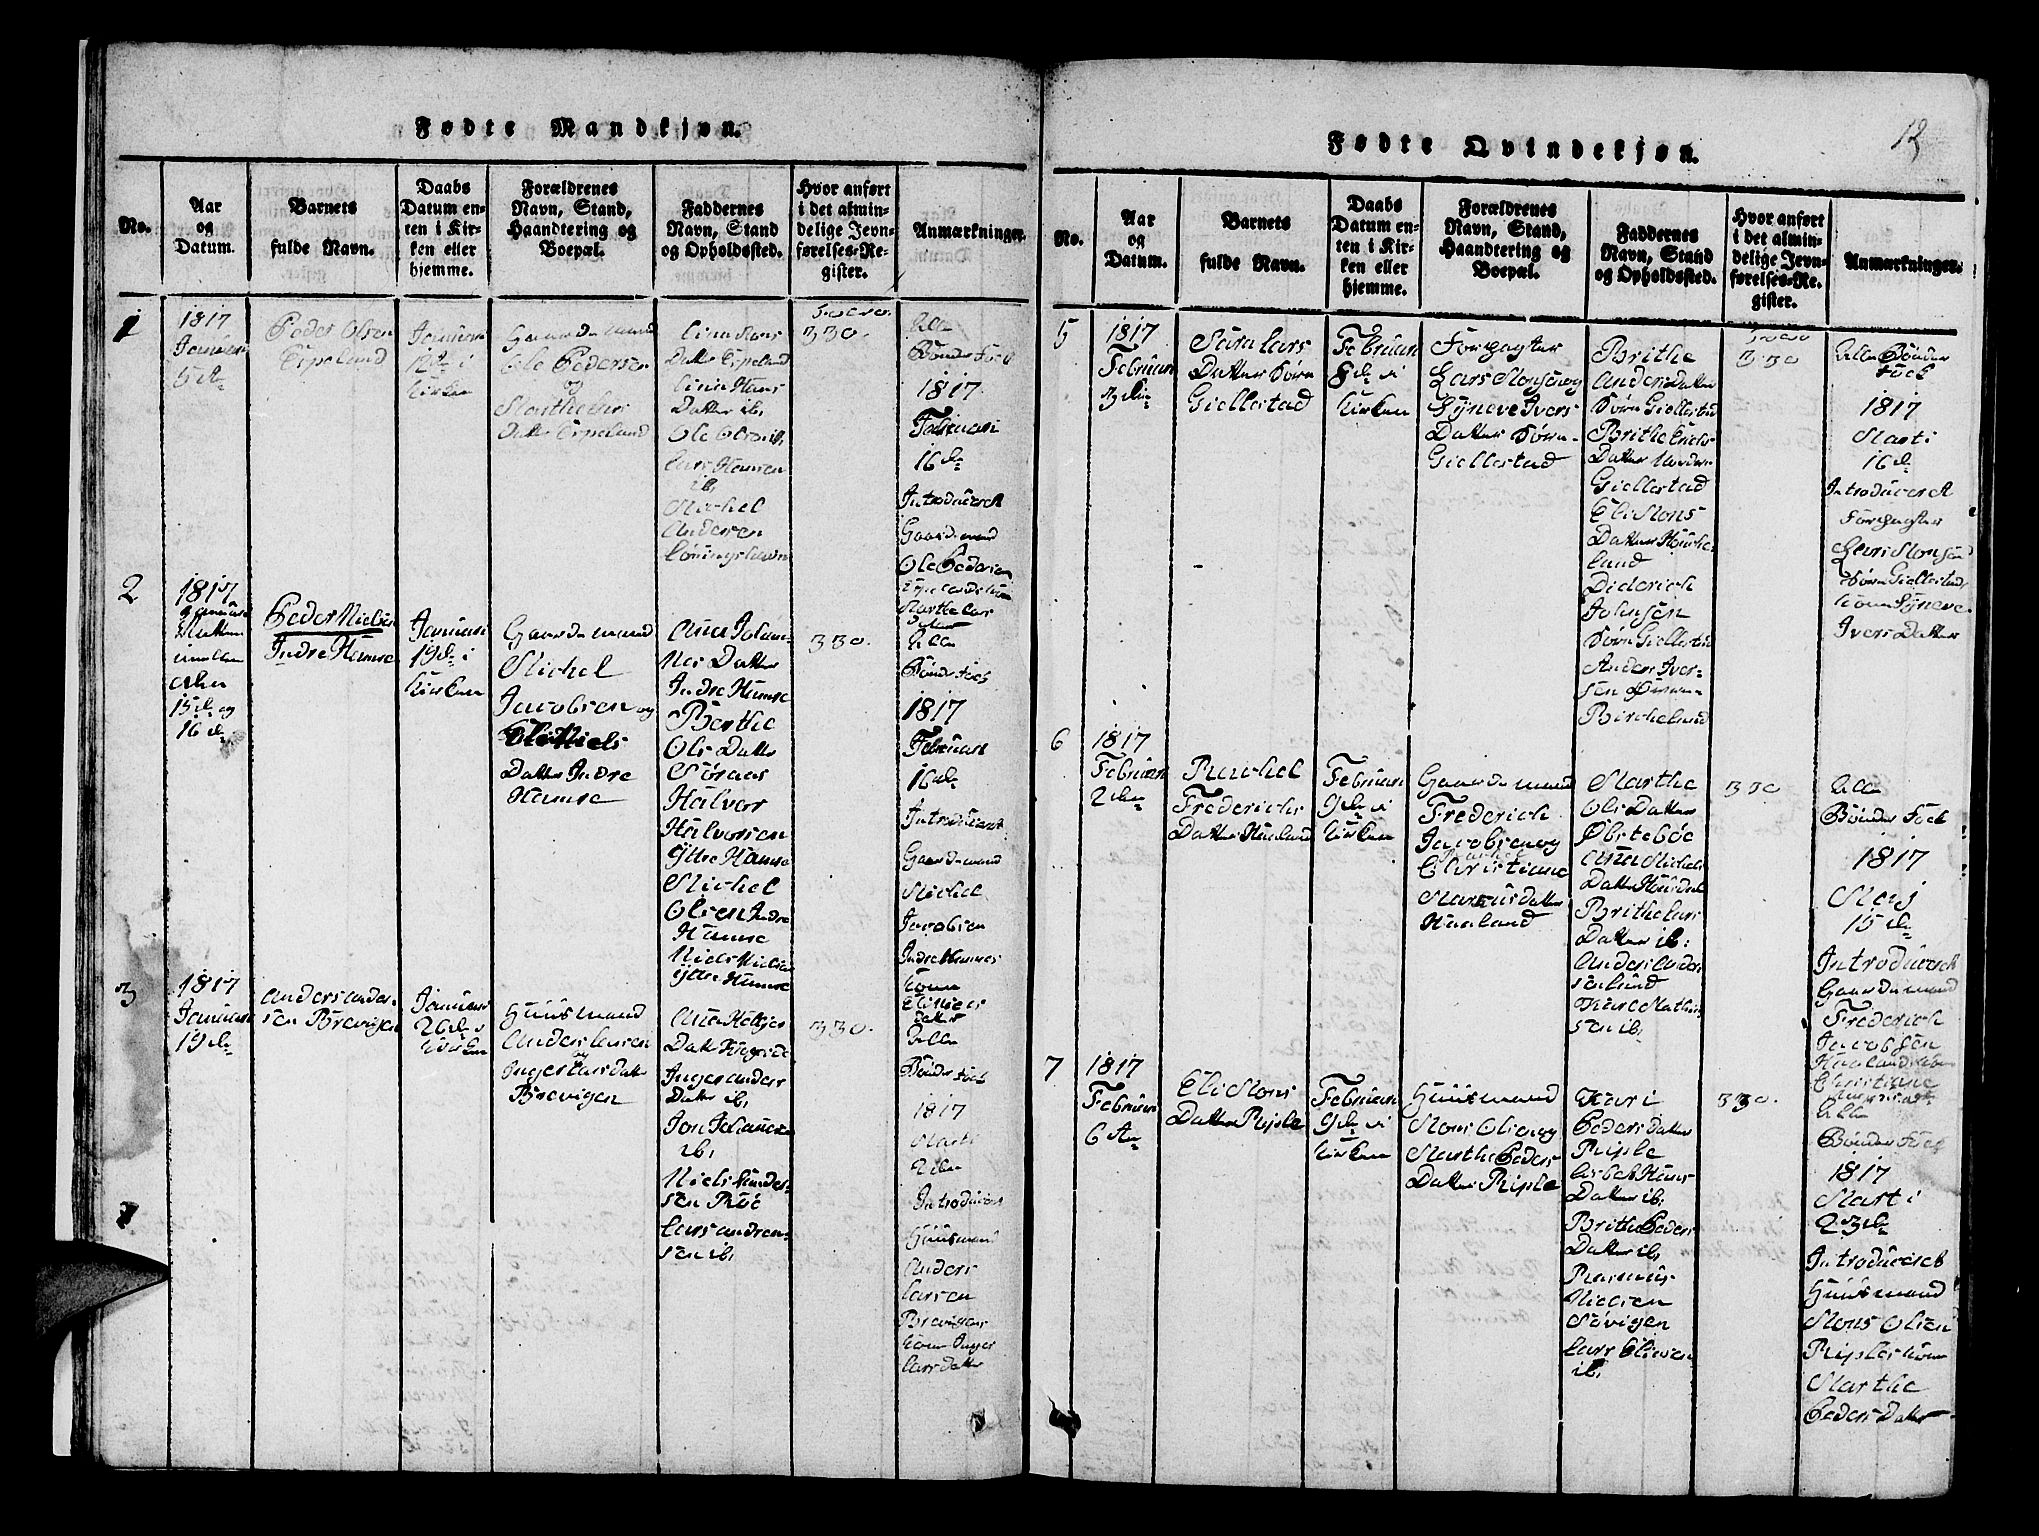 Fødte Mandkjøn.
No.
Aar
og
Datum.
Barnets
fulde Navn.
Daabs
Datum en-
ten i Kir-
ken eller
hjemme.
Forældrenes
Navn, Stand,
Haandtering og
Boepæl.
Faddernes
Navn, Stand
og Opholdssted.
Hvor anført
i det almin-
delige Jevn-
førelses-Re-
gister.
Anmærkninger.
1
1817
Januari
5 de
Peder Olsen
Espeland
Januari
12 de i
Kirken
Gaardemand
Ole Pedersen
og
Marthe Lars
Datter Espeland
Datter Espeland
Datter ib.
Ole Olsen ib.
Lars Hansen
ib.
Michel
Andersen
330.
Alle
Bønder Folk
1817
Februari
16 de
Introduceret
Gaardemand
Ole Pedersen
Marthe Lars
Datter
2
1817
15 de og
16 de
Peder Nielsen
Indre Hamre
Januari
19 de i
Kirken
Gaardemand
Michel
Jacobsen og
Eli Niels
Datter Indre
Hamre
Ana Johan-
nes Datter
Indre Hamre
Berthe
Ols Datter
Halvor
Halvorsen
Yttre Hamre
Michel
Olsen Indre
Hamre
Niels Nielsen
Yttre Hamre
330.
Alle
Bønder Folk
1817
Februari
16 de
Introduceret
Gaardemand
Michel
Jacobsen
Indre Hamres
Kone
Eli Niels
Datter
3
1817
Januari
19 de
Anders Ander-
sen Brevigen
Januari
26 de i
Kirken
Huusmand
Anders Larsen
og
Inger Lars Datter
Brevigen
Inger Anders
Datter ib.
Jon Johannesen
ib.
Niels Ander-
sen Røe
Lars Andren-
sen ib.
330.
Alle
Bønder Folk
1817
Marti
2 den
Introduceret
Huusmand
Anders
Larsen
Brevigens
Kone Inger
Lars Datter
Fødte Qvindekjøn.
12
No.
Aar
og
Datum.
Barnets
fulde Navn.
Daabs
Datum en-
ten i Kir-
ken eller
hjemme.
Forældrenes
Navn, Stand,
Haandtering og
Boepæl.
Faddernes
Navn, Stand
og Opholdssted.
Hvor anført
i det almin-
delige Jevn-
førelses-Re-
gister.
Anmærkninger.
5
1817
Februari
3 die
Sara Lars
Datter Søre
Giellestad
Februari
8 de i
Kirken
Forpagter
Lars Monsen og
Synneve Ivers
Datter Søre-
Giellestad
Brithe
Anders Datter
Søre Giellestad
Brithe Erichs
Datter Nordre
Giellestad
Eli Mons
Datter Houke-
land
Diderich
Johnsen
Søre Giellestad
Anders Iver-
sen
Birkeland
330
Alle Bønder
Folk
1817
Marti
16 de
Introduceret
Forpagter
Lars Monsen
Søre Giellestad
Kone Synneve
Ivers Datter
6
1817
Februari
2 den
Rachel
Frederichs
Datter Haaland
Februari
9 de i
Kirken
Gaardemand
Frederich
Jacobsen og
Christiane
Marcusdatter
Haaland
Marthe
Ols Datter
Øbstebøe
Ana Michels
Brithe Lars
Datter ib.
330
Alle
Bønder Folk
1817
Maij
15 de
Introduceret
Gaardemand
Frederich
Jacobsen
Haalands Kone
Christiane
7
1817
Februari
6 te
Eli Mons
Datter Riple
Februari
9 de i
Kirken
Huusmand
Mons Olsen og
Marthe Peders
Datter Riple
Kari
Peders Datter
Riple
Lisbet Hans
Datter ib.
Brithe Peders
Datter ib.
Rasmus
Nielsen
Søvigen
ib.
330.
Alle
Bønder Folk
1817
Marti
23 de
Introduceret
Huusmand
Mons Olsen
Riples Kone
Marthe
Peders Datter